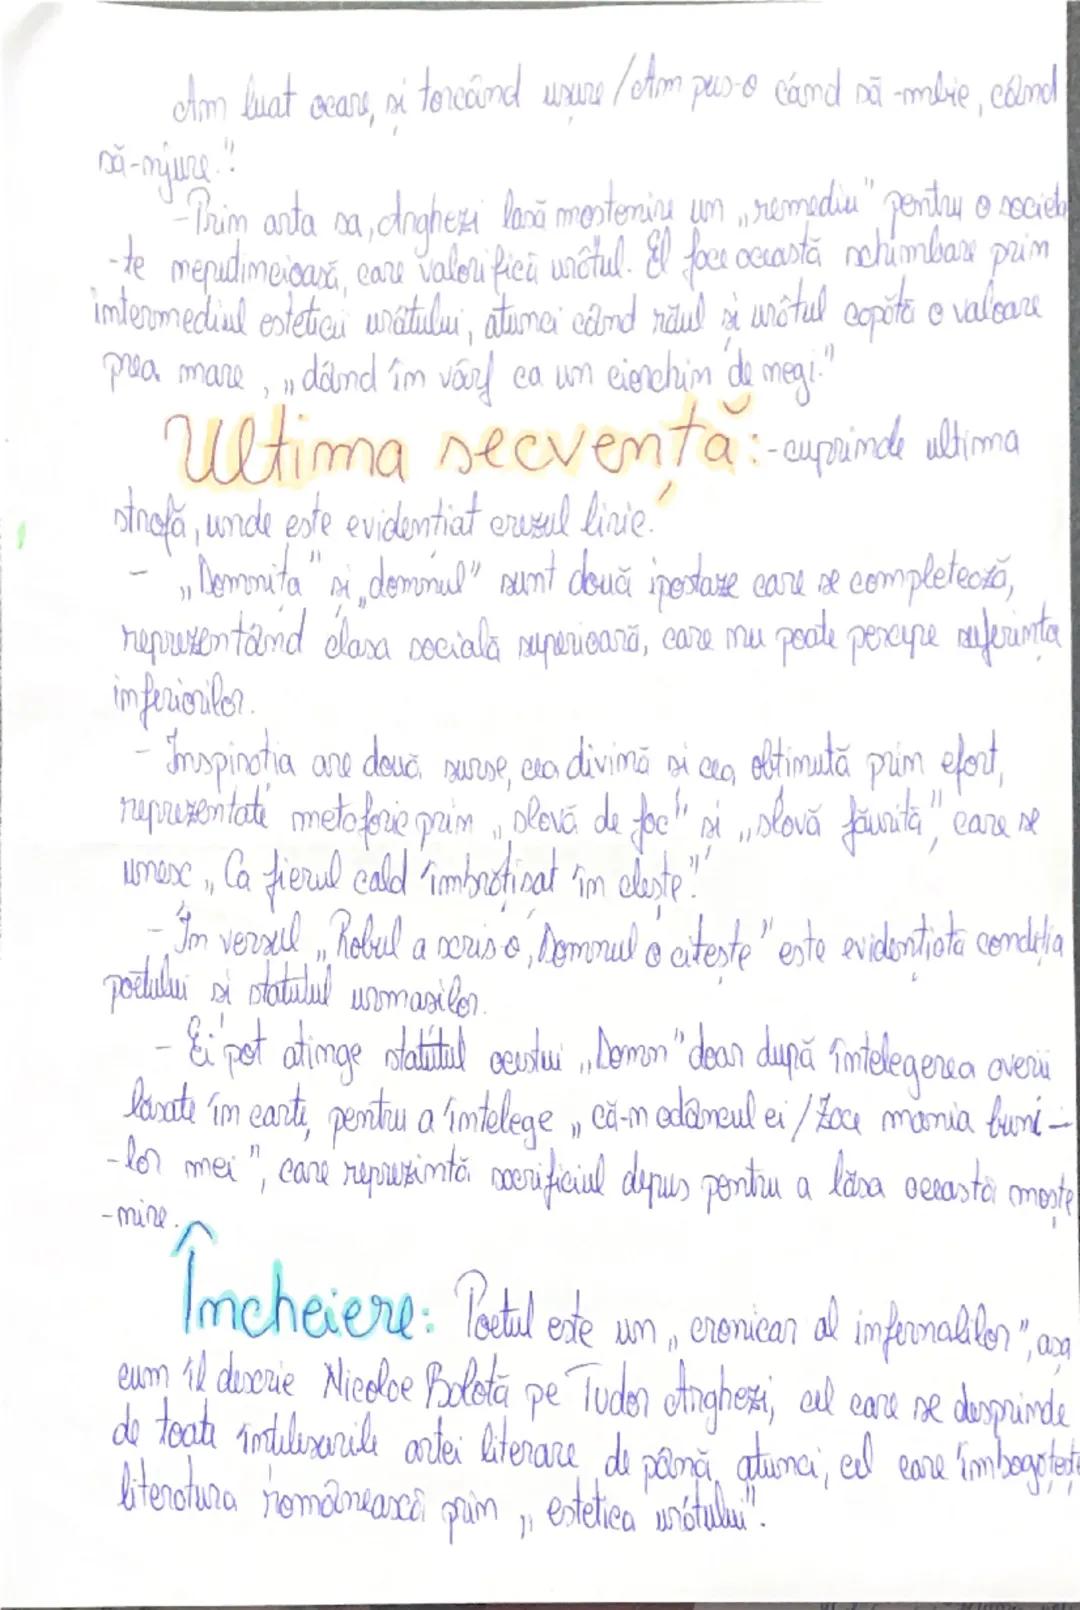 Am luat ocara, și torcând ușure / Am pus-o când să-mbie, când
să-njure."
-Prin arta sa, Arghezi lasă moștenire un „remediu" pentru o societa
-te neputincioasă, care valorifică urâtul. El face această schimbare prin
intermediul esteticii urâtului, atunci când răul și urâtul capătă o valoare
prea mare, „dând în vârf ca un ciorchin de negi."
Ultima secvență: -cuprinde ultima
strofă, unde este evidențiat crezul liric.
- „Domnița" și „domnul" sunt două ipostaze care se completează,
reprezentând clasa socială superioară, care nu poate percepe suferința
inferiorilor.
- Inspirația are două surse, cea divină și cea obținută prin efort,
reprezentate metaforic prin „slovă de foc" și „slovă făurită", care se
unesc „Ca fierul cald îmbrățișat în clește."
- În versul „Robul a scris-o, Domnul o citește" este evidențiată condiția
poetului și statutul urmașilor.
- Ei pot atinge statutul acestui „Domn" doar după înțelegerea averii
lăsate în carte, pentru a înțelege „că-n adâncul ei / Zace mania buni-
-lor mei", care reprezintă sacrificiul depus pentru a lăsa această mоște
-nire.
Încheiere: Poetul este un „cronicar al infernalilor", așa
cum îl descrie Nicolae Balotă pe Tudor Arghezi, cel care se desprinde
de toate înțelesurile artei literare de până atunci, cel care îmbogățește
literatura românească prin „estetica urâtului".